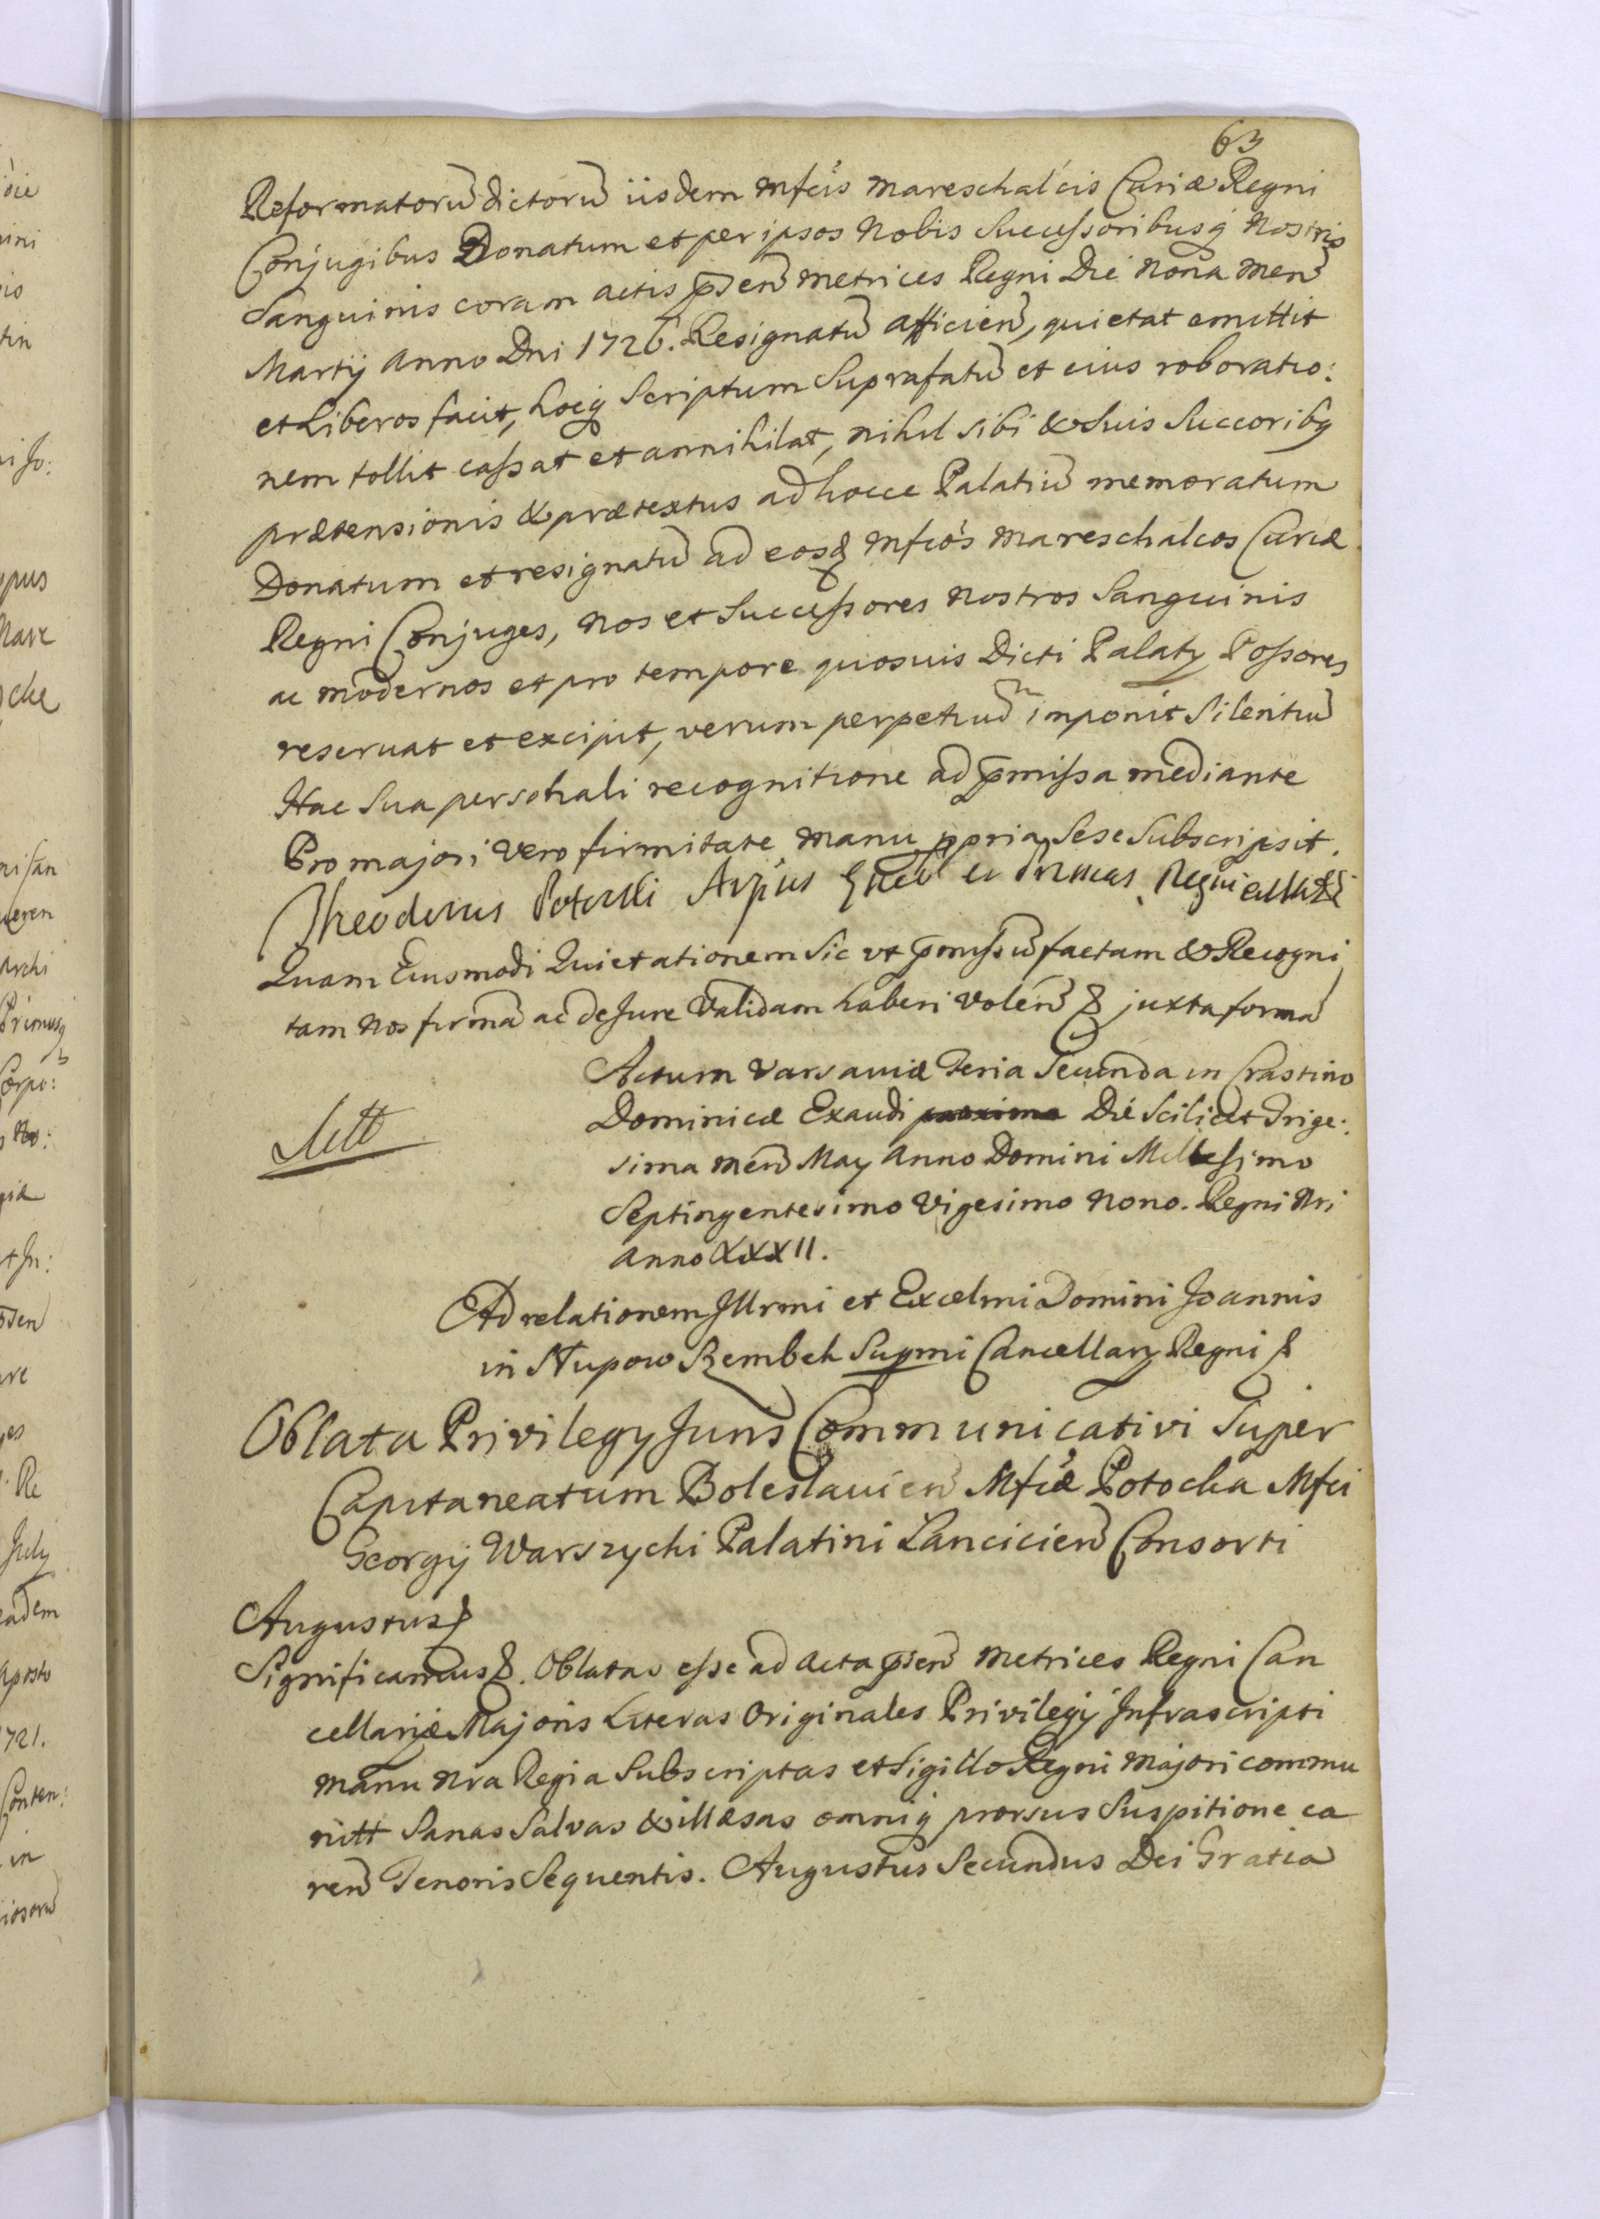 63
Reformatorū dictorū iisdem Mfcis Mareschalcis Curiæ Regni
Conjugibus Donatum et per ipsos Nobis Successoribusq Nostris
Sanguinis coram actis p̄sen Metrices Regni Die Nona Men
Martij Anno Dni 1726. Resignatū afficien, quietat emittit
et Liberos facit, hocq Scriptum Suprafatū et eius roboratio:
nem tollit cassat et annihilat, nihil sibi & Suis Succoribq
prætensionis & prætextus ad hocce Palatiū memoratum
Donatum et resignatū ad eosq Mfcos Mareschalcos Curiæ
Regni Conjuges, Nos et Successores Nostros Sanguinis
ac modernos et pro tempore quosuis Dicti Palaty Possores
reseruat et excipit, verum perpetuū imponit Silentiū
Hac Sua personali recognitione ad p̄missa mediante
Pro majori Vero firmitate Manu ppria Sese Subscripsit.
Theodorus Potocki Arp̃us Regni
Quam Eiusmodi Quietationem Sic vt p̄missū factam & Recogni
tam Nos firmā ac de Jure Validam haberi Volen & juxta formā
Actum Varsaviæ Feria Secunda in Crastino
Dominicæ Exaudi proxima Die Scilicet Trige:
sima Men May Anno Domini Millesimo
Septingentesimo Vigesimo Nono. Regni Nri
Anno XXXII.
Ad relationem Illrmi et Excelmi Domini Joannis
in Słupow Szembek Supmi Cancellary Regni &
Oblata Privilegy Juris Communicativi Super
Capitaneatum Boleslauien Mfcæ Potocka Mfci
Georgij Warszycki Palatini Lancicien Consorti
Augustus &
Significamus &. Oblatas esse ad Acta p̄sen Metrices Regni Can
cellariæ Majoris Literas Originales Privilegÿ Infrascripti
Manu Nra Regia Subscriptas et Sigillo Regni Majori commu
nitt Sanas Salvas & illæsas omniq prorsus Suspitione ca
ren Tenoris Sequentis. Augustus Secundus Dei Gratia